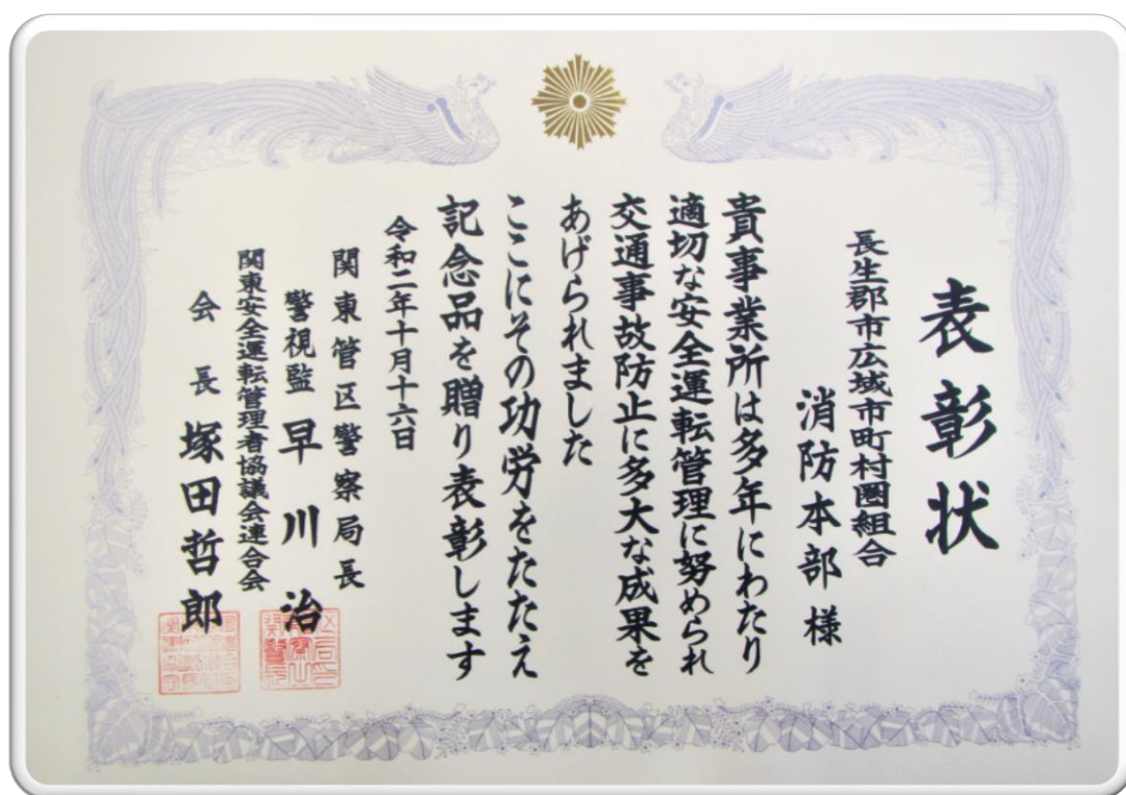 表彰状
長生郡市広域市町村圏組合
消防本部様
貴事業所は多年にわたり
適切な安全運転管理に努められ
交通事故防止に多大な成果を
あげられました
ここにその功労をたたえ
記念品を贈り表彰します
令和二年十月十六日
関東管区警察局長
警視監 早川治
関東安全運転管理者協議会連合会
会長 塚田哲郎